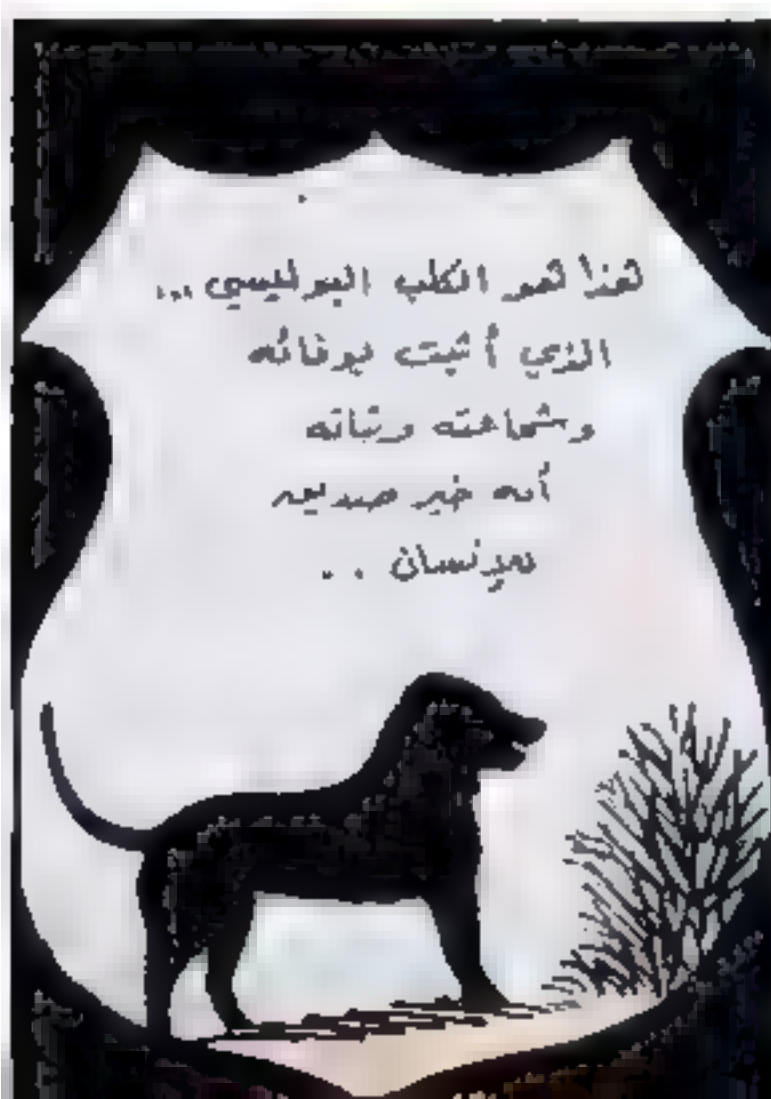 هذا هو الكلب البوليسي...
الذي أثبت بوفائه
وشجاعته وثباته
أنه خير صديق
للإنسان ..